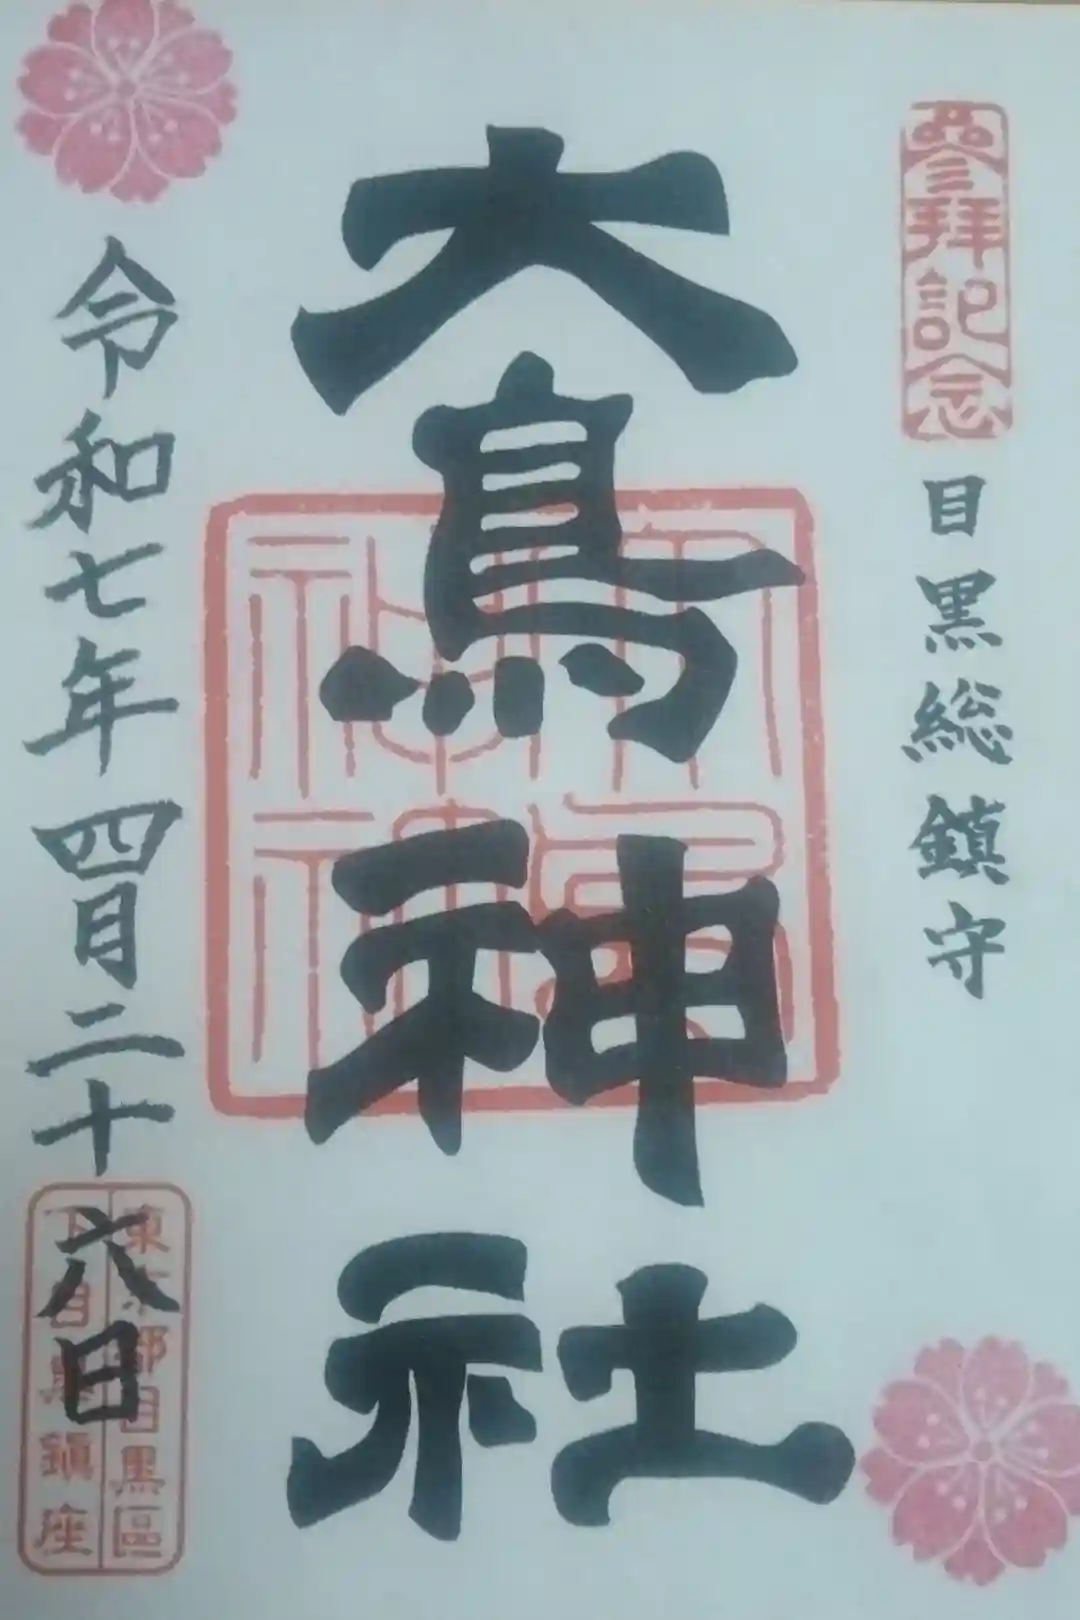 參拜記念
目黒総鎮守
大鳥神社
大鳥神社
令和七年四月二十六日
東京都目黒區
下目黒鎮座